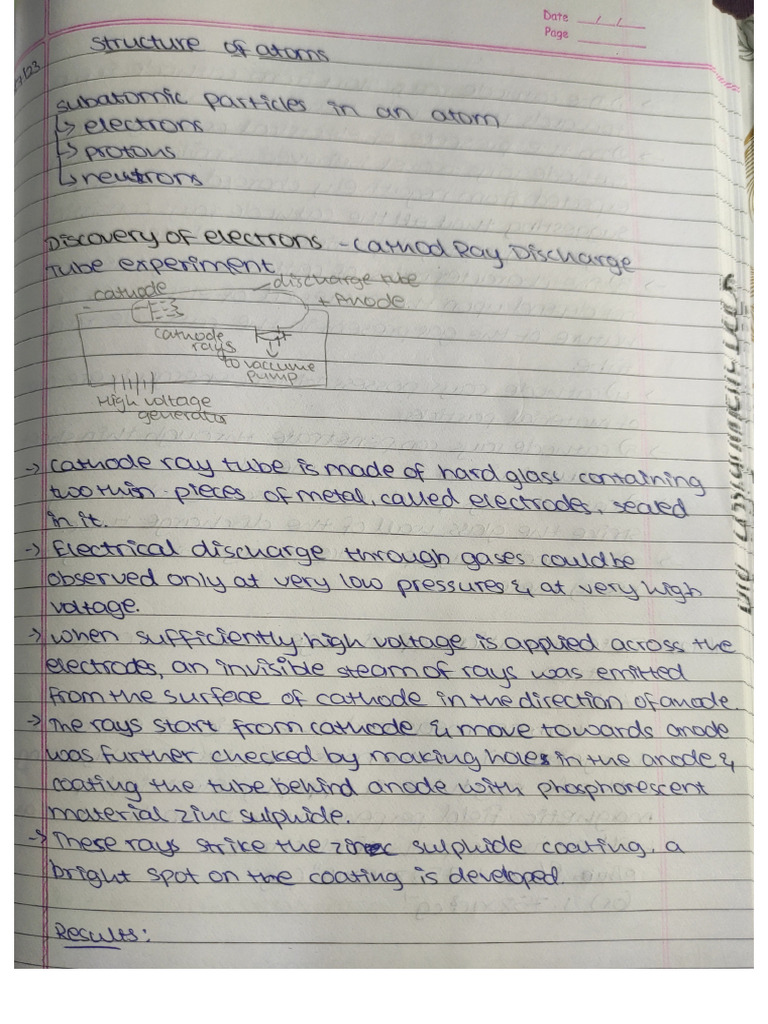 Date / /
Page
Structure of atoms
subatomic particles in an atom
↳ electrons
↳ protons
↳ neutrons
Discovery of electrons - Cathod Ray Discharge
Tube experiment
cathode
discharge tube
- + Anode
cathode
rays
to vaccume
pump
High voltage
generator
→ Cathode ray tube is made of hard glass containing
two thin pieces of metal, called electrodes, sealed
in it.
→ Electrical discharge through gases could be
observed only at very low pressures & at very high
voltage.
→ When sufficiently high voltage is applied across the
electrodes, an invisible steam of rays was emitted
from the surface of cathode in the direction of anode.
→ The rays start from cathode & move towards anode
was further checked by making holes in the anode &
coating the tube behind anode with phosphorescent
material zinc sulphide.
→ These rays strike the zinc sulphide coating, a
bright spot on the coating is developed.
Results: